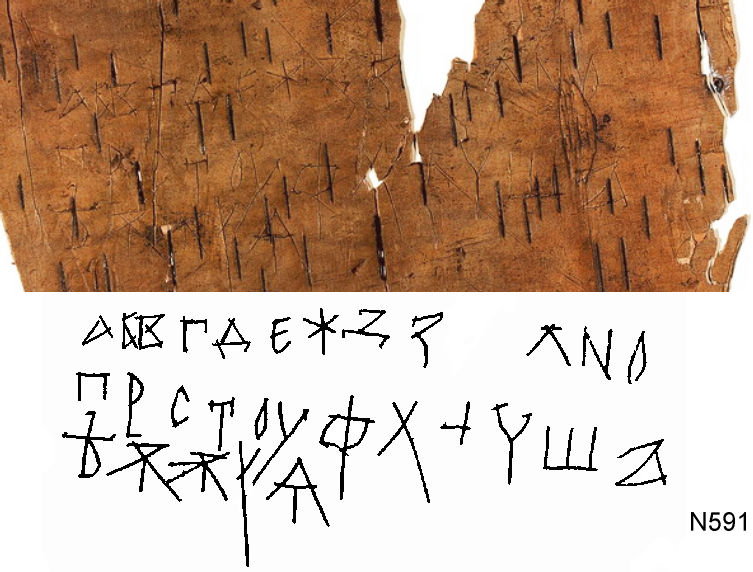 АБВГДЕЖЅЗ ЛNО
ПРСТОУФХ+ЧШ
ѢѪЖѦ
N591